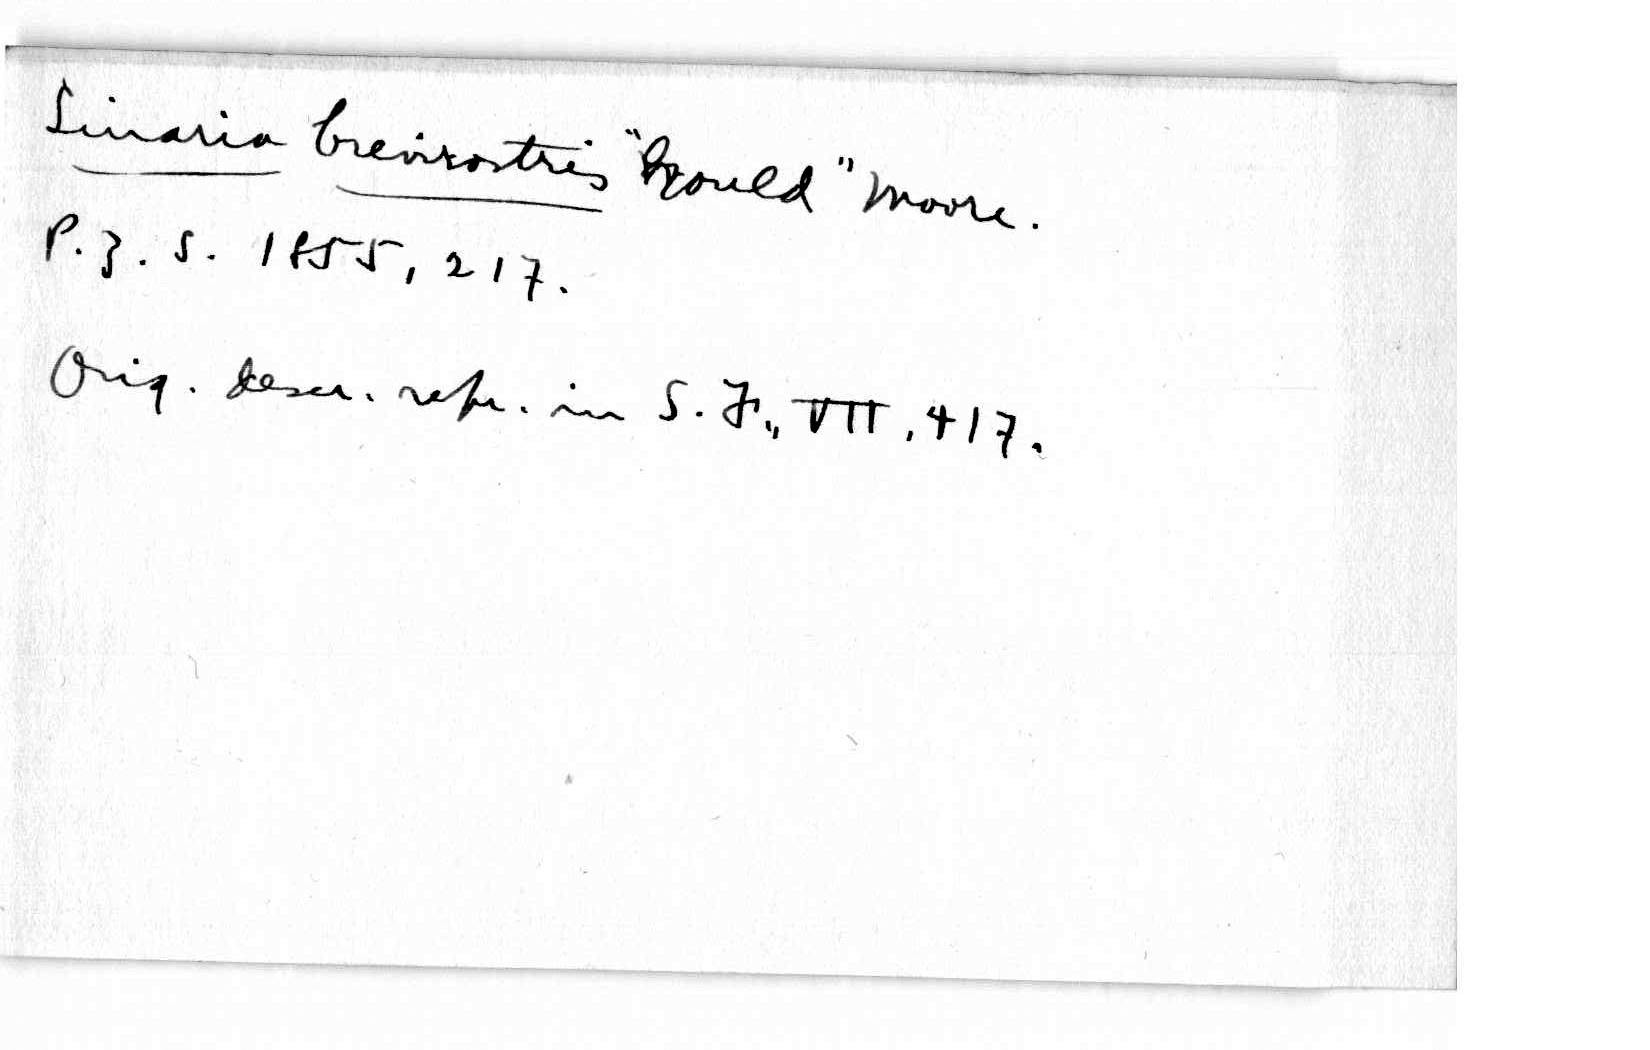 Linaria brevirostris "Gould" Moore.
P. Z. S. 1855, 217.
Orig. descr. repr. in S. F., VII, 417.